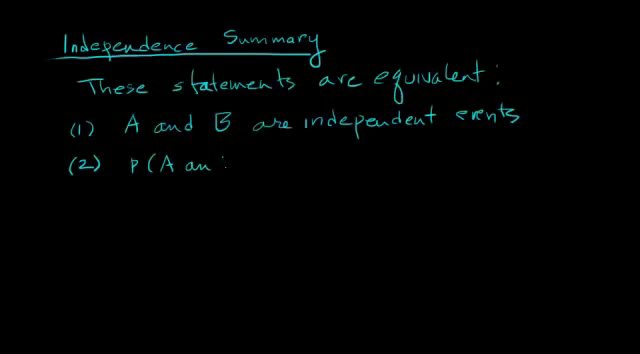 Independence Summary
These statements are equivalent:
(1) A and B are independent events
(2) P(A an